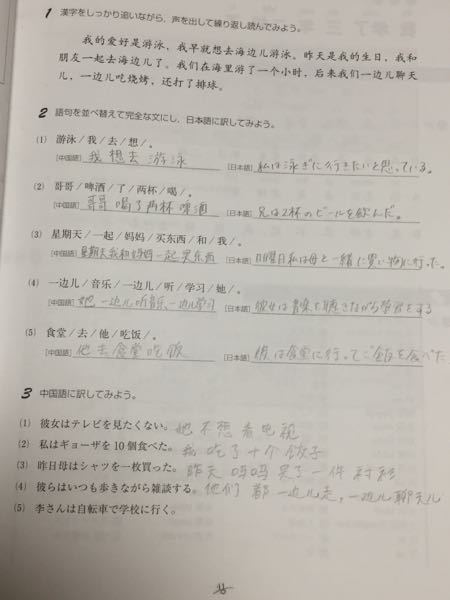 1 漢字をしっかり追いながら、声を出して繰り返し読んでみよう。
我的爱好是游泳，我早就想去海边儿游泳。昨天是我的生日，我和
朋友一起去海边儿了。我们在海里游了一个小时，后来我们一边儿聊天
儿，一边儿吃烧烤，还打了排球。
2 語句を並べ替えて完全な文にし、日本語に訳してみよう。
(1) 游泳／我／去／想／。
[中国語] 我想去游泳 [日本語] 私は泳ぎに行きたいと思っている。
(2) 哥哥／啤酒／了／两杯／喝／。
[中国語] 哥哥喝了两杯啤酒 [日本語] 兄は2杯のビールを飲んだ。
(3) 星期天／一起／妈妈／买东西／和／我／。
[中国語] 星期天我和妈妈一起买东西 [日本語] 日曜日私は母と一緒に買い物に行った。
(4) 一边儿／音乐／一边儿／听／学习／她／。
[中国語] 她一边儿听音乐一边儿学习 [日本語] 彼女は音楽を聴きながら学習をする
(5) 食堂／去／他／吃饭／。
[中国語] 他去食堂吃饭 [日本語] 彼は食堂に行ってご飯を食べた
3 中国語に訳してみよう。
(1) 彼女はテレビを見たくない。 她不想看电视
(2) 私はギョーザを10個食べた。 我吃了十个饺子
(3) 昨日母はシャツを一枚買った。 昨天妈妈买了一件衬衫
(4) 彼らはいつも歩きながら雑談する。 他们都一边儿走，一边儿聊天儿
(5) 李さんは自転車で学校に行く。